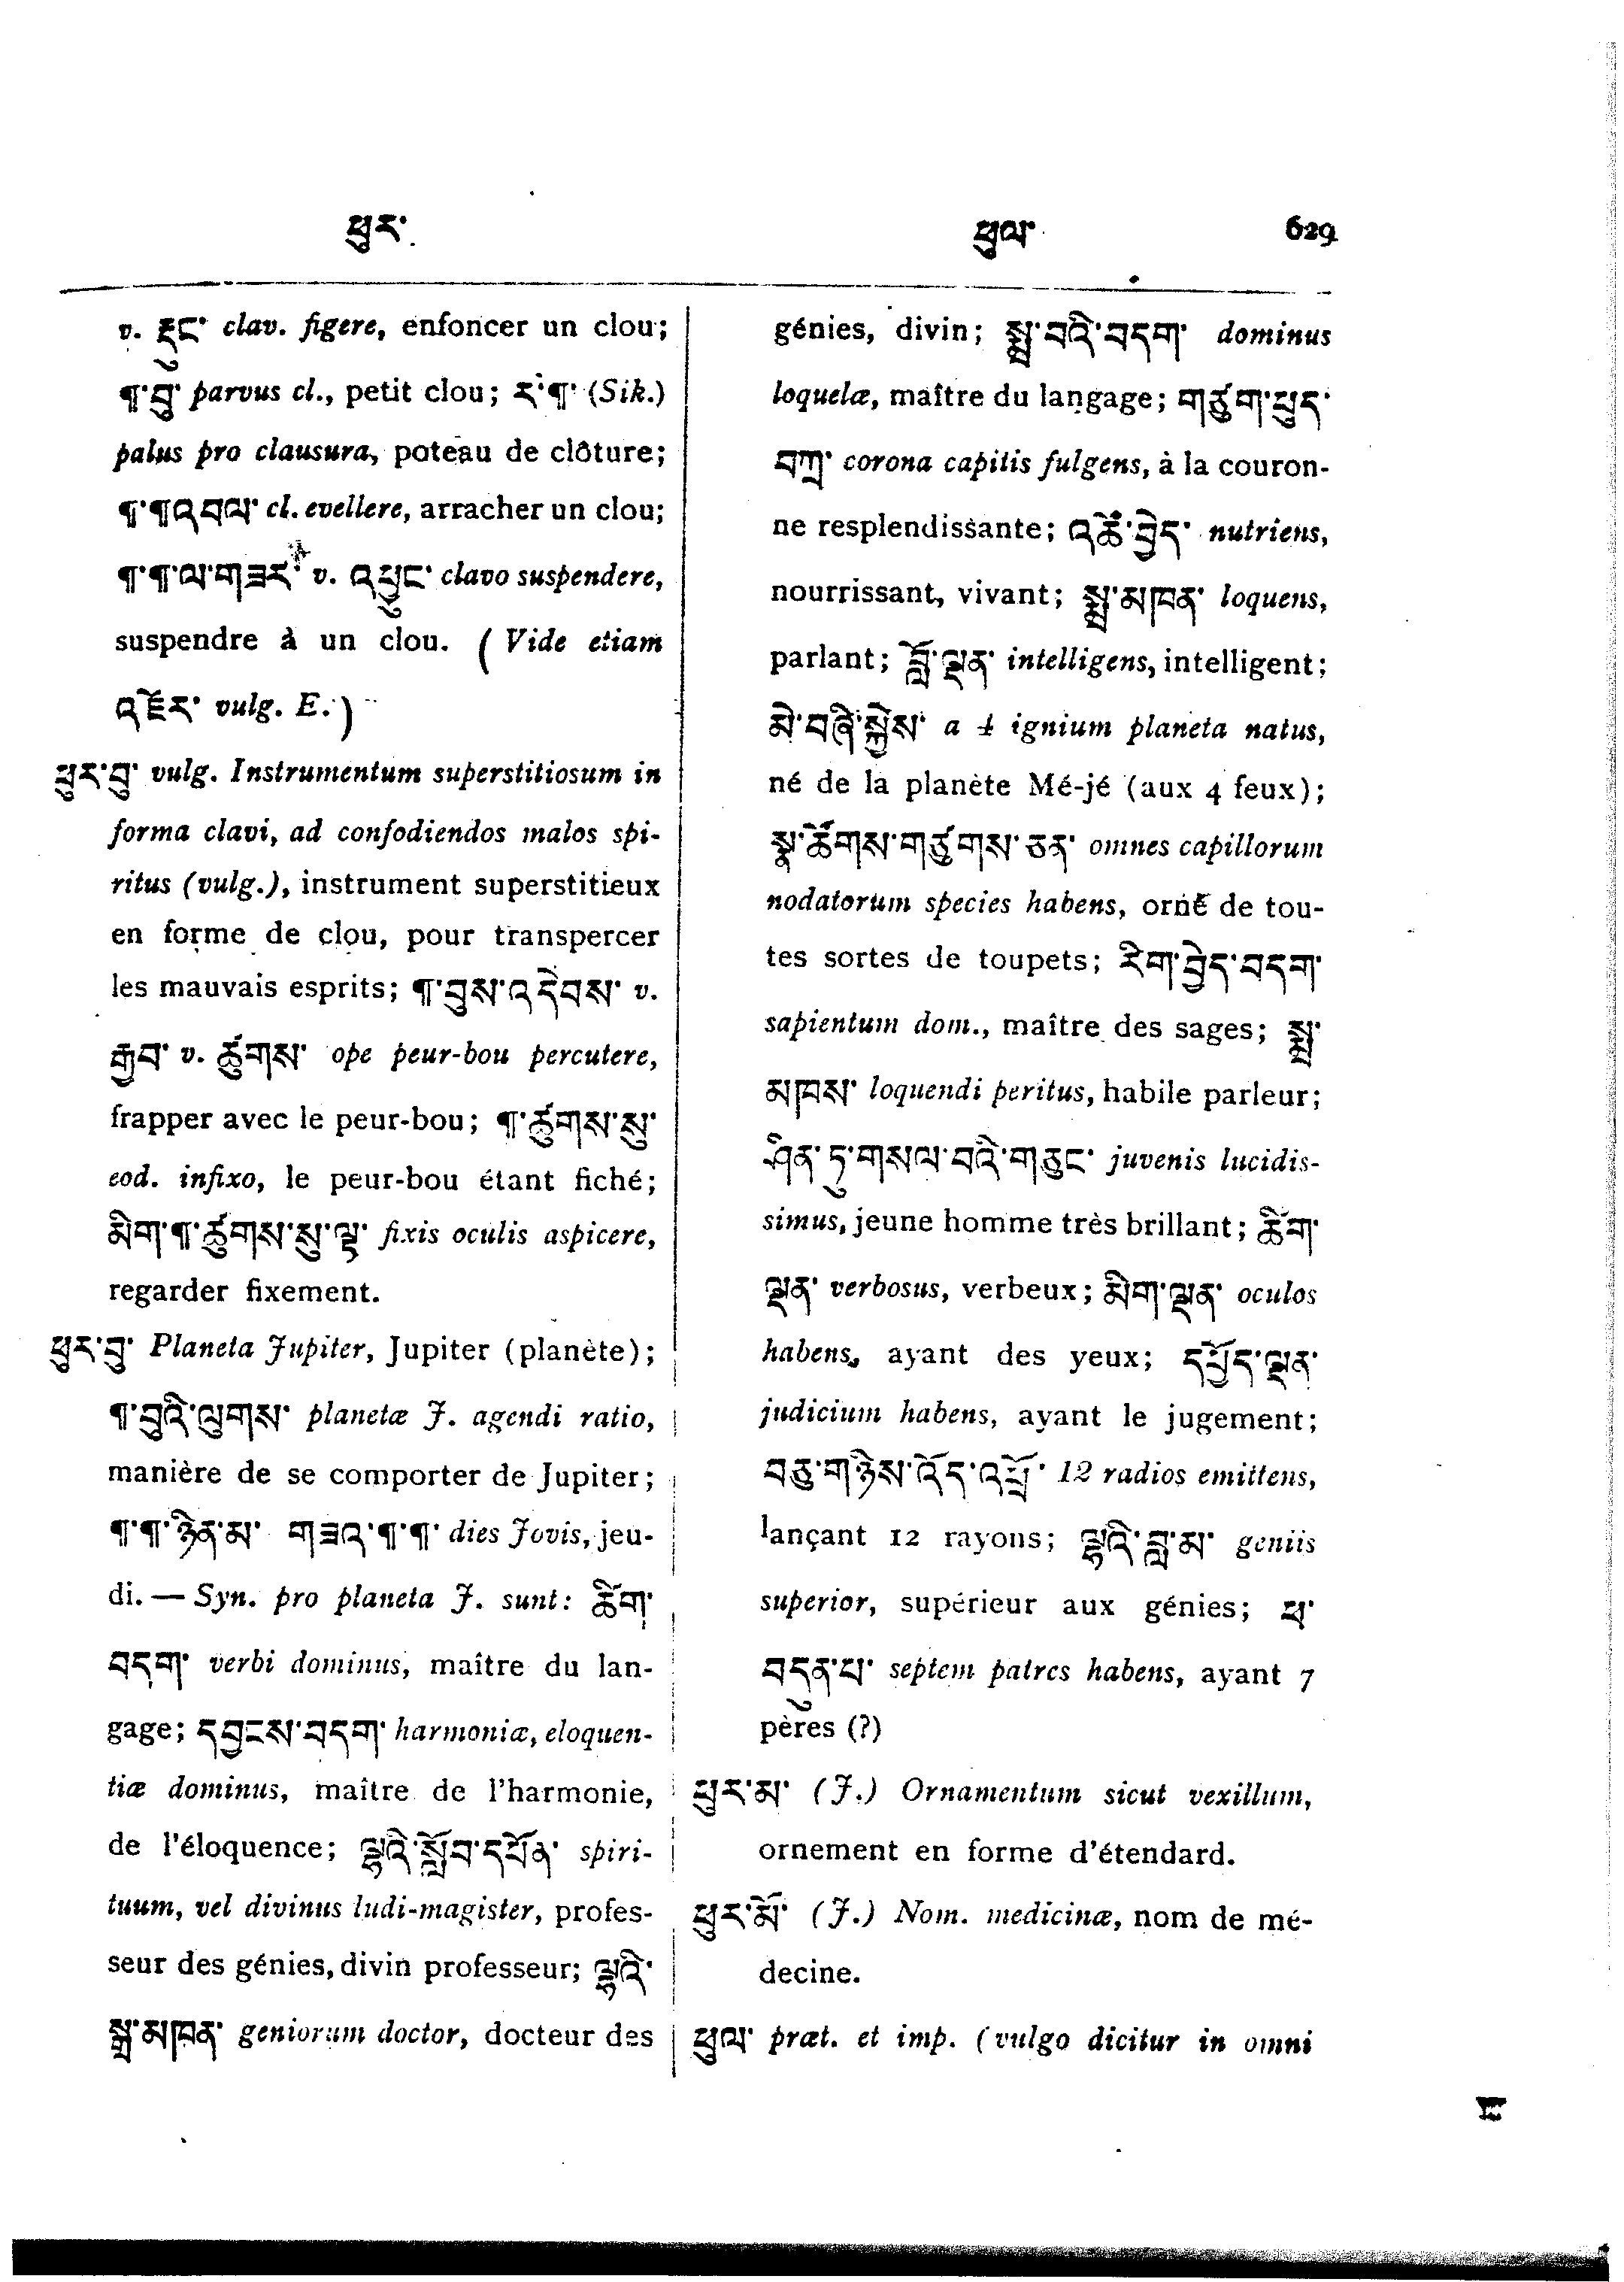 ཕུར་
ཕུལ་ 629
v. རྡུང་ clav. figere, enfoncer un clou;
¶་བུ་ parvus cl., petit clou; ར་¶་ (Sik.)
palus pro clausura, poteau de clôture;
¶་¶འབལ་ cl. evellere, arracher un clou;
¶་¶་ལ་གཟར་ v. འཕྱང་ clavo suspendere,
suspendre à un clou. (Vide etiam
འཛེར་ vulg. E.)
ཕུར་བུ་ vulg. Instrumentum superstitiosum in
forma clavi, ad confodiendos malos spi-
ritus (vulg.), instrument superstitieux
en forme de clou, pour transpercer
les mauvais esprits; ¶་བུས་འདེབས་ v.
རྒྱབ་ v. ཚུགས་ ope peur-bou percutere,
frapper avec le peur-bou; ¶་ཚུགས་སུ་
eod. infixo, le peur-bou étant fiché;
མིག་¶་ཚུགས་སུ་ལྟ་ fixis oculis aspicere,
regarder fixement.
ཕུར་བུ་ Planeta Jupiter, Jupiter (planète);
¶་བུའི་ལུགས་ planetæ J. agendi ratio,
manière de se comporter de Jupiter;
¶་¶་ཉིན་མ་ གཟའ་¶་¶་ dies Jovis, jeu-
di. — Syn. pro planeta J. sunt: ཚིག་
བདག་ verbi dominus, maître du lan-
gage; དབྱངས་བདག་ harmoniæ, eloquen-
tiæ dominus, maître de l'harmonie,
de l'éloquence; ལྷའི་སློབ་དཔོན་ spiri-
tuum, vel divinus ludi-magister, profes-
seur des génies, divin professeur; ལྷའི་
སྨྲ་མཁན་ geniorum doctor, docteur des
génies, divin; སྨྲ་བའི་བདག་ dominus
loquelæ, maître du langage; གཙུག་ཕུད་
བཀྲ་ corona capitis fulgens, à la couron-
ne resplendissante; འཚོ་བྱེད་ nutriens,
nourrissant, vivant; སྨྲ་མཁན་ loquens,
parlant; བློ་ལྡན་ intelligens, intelligent;
མེ་བཞི་སྐྱེས་ a 4 ignium planeta natus,
né de la planète Mé-jé (aux 4 feux);
སྣ་ཚོགས་གཙུགས་ཅན་ omnes capillorum
nodatorum species habens, orné de tou-
tes sortes de toupets; རིག་བྱེད་བདག་
sapientum dom., maître des sages; སྨྲ་
མཁས་ loquendi peritus, habile parleur;
ཤིན་ཏུ་གསལ་བའི་གཅུང་ juvenis lucidis-
simus, jeune homme très brillant; ཚིག་
ལྡན་ verbosus, verbeux; མིག་ལྡན་ oculos
habens, ayant des yeux; དཔྱོད་ལྡན་
judicium habens, ayant le jugement;
བཅུ་གཉིས་འོད་འཕྲོ་ 12 radios emittens,
lançant 12 rayons; ལྷའི་བླ་མ་ geniis
superior, supérieur aux génies; ཕ་
བདུན་པ་ septem patres habens, ayant 7
pères (?)
ཕུར་མ་ (J.) Ornamentum sicut vexillum,
ornement en forme d'étendard.
ཕུར་མོ་ (J.) Nom. medicinæ, nom de mé-
decine.
ཕུལ་ præt. et imp. (vulgo dicitur in omni